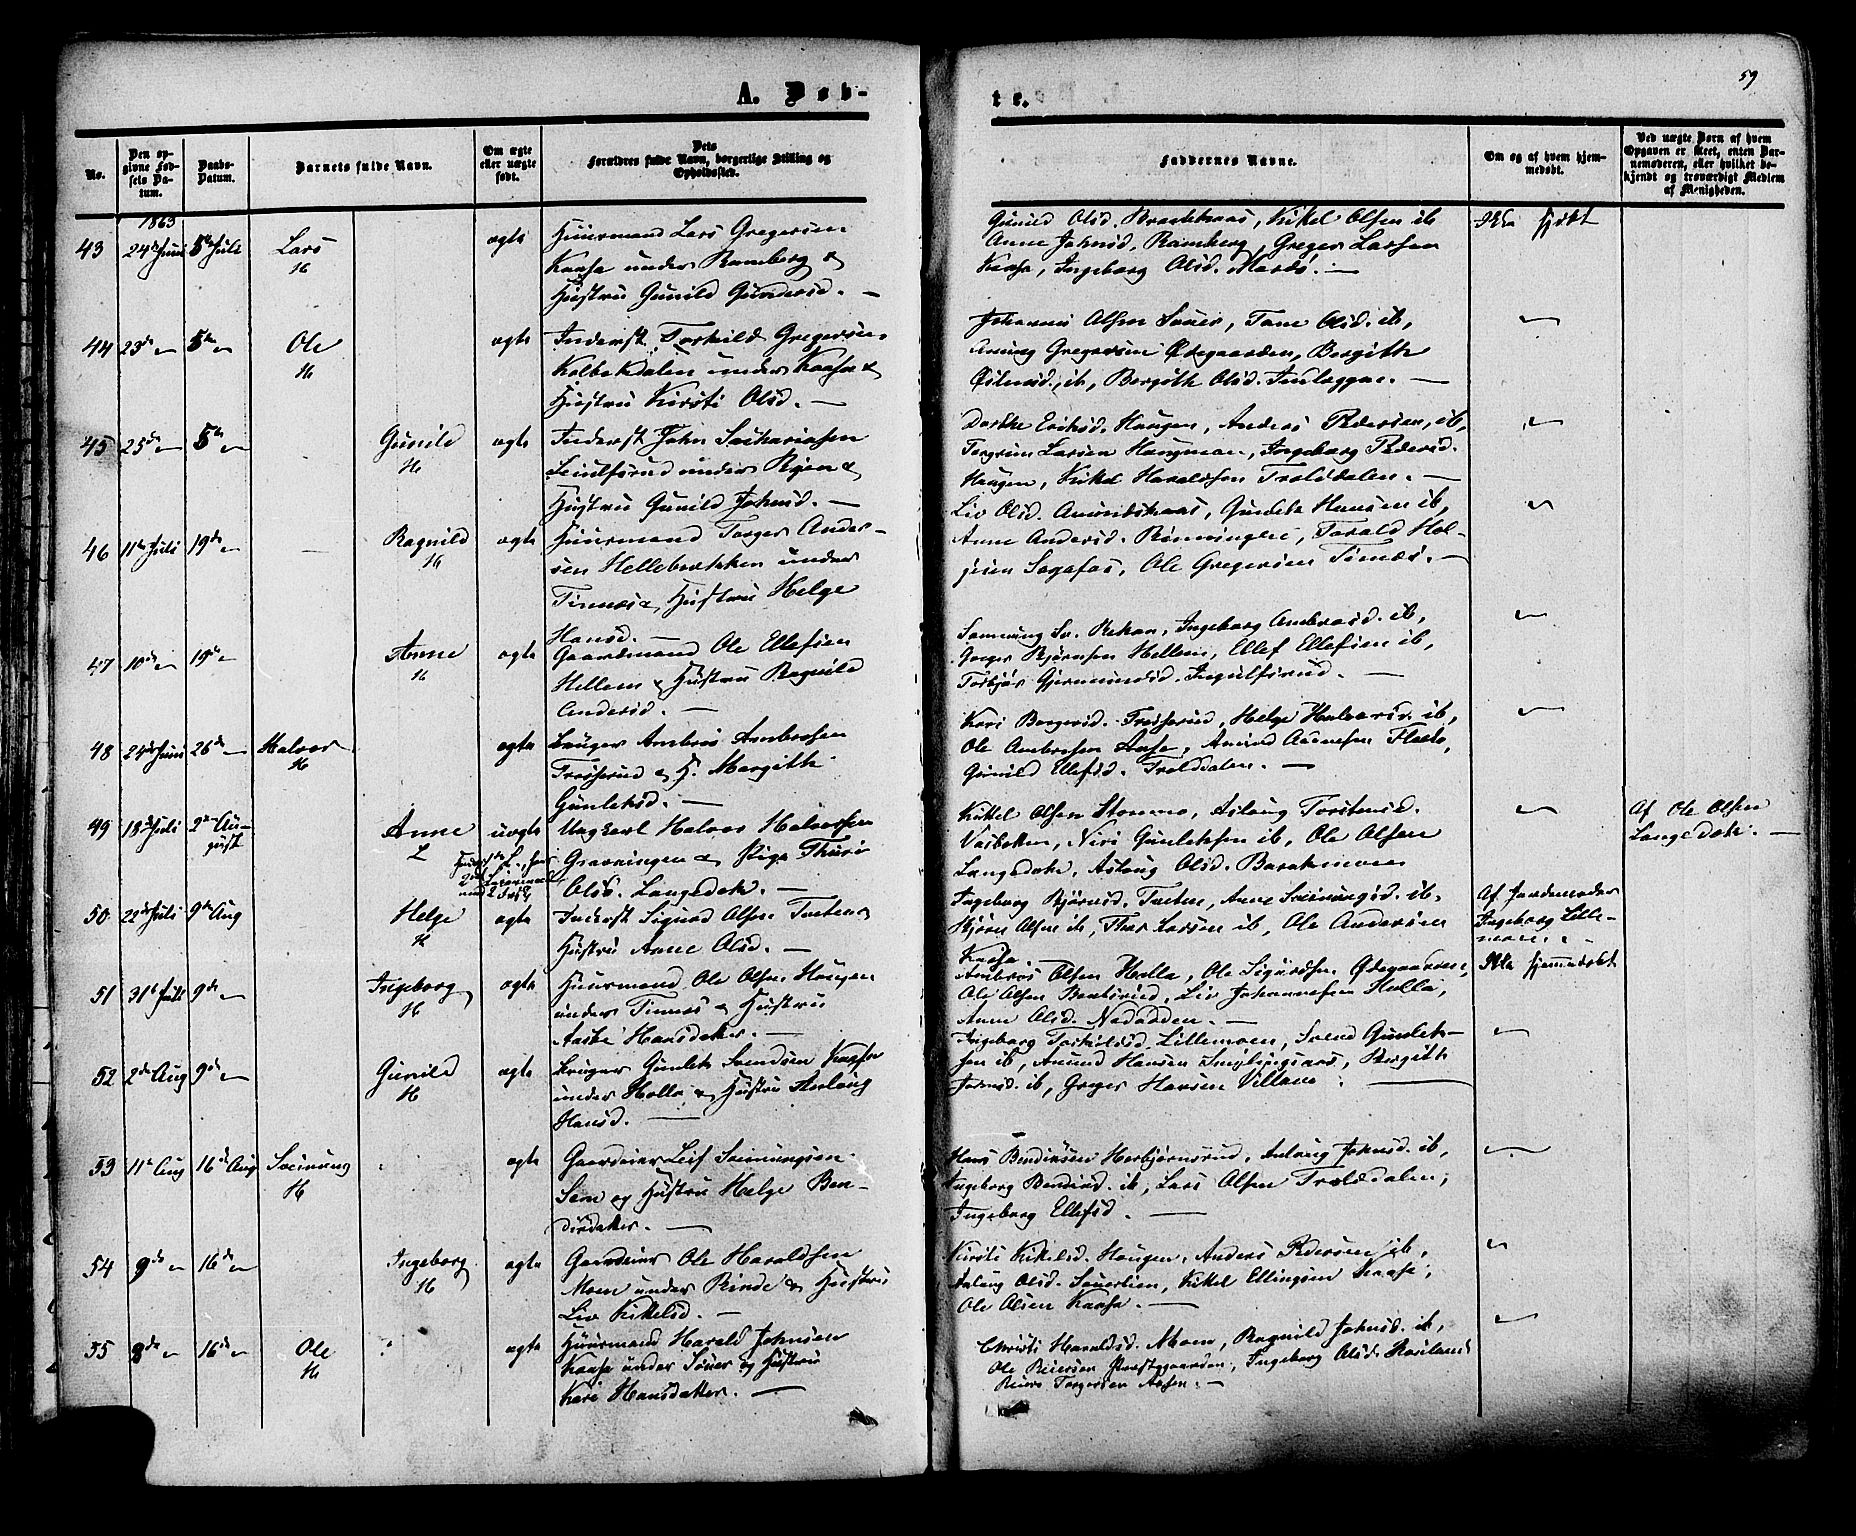 59
A. Døb-
te.
No.
Den op-
givne Fød-
sels Da-
tum.
Daabs-
Datum.
Barnets fulde Navn.
Om ægte
eller uægte
født.
Dets
Forældres fulde Navn, borgerlige Stilling og
Opholdssted.
Faddernes Navne.
Om og af hvem hjem-
medøbt.
Ved uægte Børn af hvem
Opgaven er skeet, enten Bar-
nemoderen, eller hvilket be-
kjendt og troværdigt Medlem
af Menigheden.
1863
43 24de Juni 5te Juli Lars ægte Huusmand Lars Gregersen
H
Kaasa under Ramberg &
Hustru Gunild Gundersd. —
Gunild Olsd. Brækkaas, Kittel Olsen ib
Anne Johnsd. Ramberg, Greger Larsen
Kaasa, Ingeborg Olsd. —
Ikke hjdbt
44 23de 5te Ole ægte Inderst Torkild Gregersen
H
Kolbekdalen under Kaasa &
Hustru Kirsti Olsd. —
Johannes Olsen Sauer, Tone Olsd. ib,
Gregersen Ødegaarden, Bergith
ib, Bergith Olsd. —
45 25de 5te Gunild ægte Inderst John Zachariasen
H
under &
Hustru Gunild Johnsd. —
Dorthe Eriksd. Haugen, Anders Pedersen ib,
Torgrim Larsen Haugmoen, Ingeborg Pedersd.
Haugen, Kittel Haraldsen Trolddalen. —
46 11te Juli 19de Ragnild ægte Huusmand Torger Ander-
H
sen Hellebrekken under
Tinnes & Hustru Helge
Hansd. —
Liv Olsd. Amundskaas, Gunlek Hansen ib,
Anne Andersd. Rønningen, Torald Hel-
gesen Sagafos, Ole Gregersen Tinnes. —
47 10de 19de Anne ægte Gaardmand Ole Ellefsen
H
Hellem & Hustru Ragnild
Andersd. —
Ingeborg Ambrosd. ib,
Torger Bjørnsen Hellem, Ellef Ellefsen ib,
Torbjør Gjermundsd. Ingulfsrud. —
48 24de Juni 26de Halvor ægte Bruger Ambros Ambrosen
H
Trøiserud & H. Margith
Gunleksd. —
Kari Borgersd. Trøiserud, Helge Halvorsd. ib,
Ole Ambrosen Aase, Amund Flaata,
Gunild Ellefsd. Trolddalen. —
49 18de Juli 2den Au-
gust Anne uægte Ungkarl Halvor Halvorsen
L
Gravningen & Pige Thuri
Olsd. Langedok. —
Kittel Olsen Stomno, Aslaug Torstensd.
Niri Gunleksen ib, Ole Olsen
Langedok, Aslaug Olsd.
Af Ole Olsen
Langedok. —
50 22de Juli 9de Aug Helge ægte Inderst Sigurd Olsen Tveten &
H
Hustru Anne Olsd. —
Ingeborg Bjørnsd. Tveten, Anne Sveinungsd. ib.
Bjørn Olsen ib, Thor Larsen ib, Ole Andersen
Kaasa. —
Af Jordemoder
Ingeborg Lille-
moen.
51 31te Juli 9de Ingeborg ægte Huusmand Ole Olsen Haugen
H
under Tinnes & Hustru
Aasbe Hansdatter. —
Ambros Olsen Holla, Ole Sigurdsen Ødegaarden,
Ole Olsen Bentsrud, Liv Johannesen Holla,
Anne Olsd. Nedadden. —
Ikke hjemmedøbt
52 2den Aug 9de Gunild ægte Bruger Gunlek Svendsen Kaasa
H
under Holla & Hustru Aslaug
Hansd. —
Ingeborg Torkildsd. Lillemoen, Svend Gunlek-
sen ib, Amund Hansen Bergith
Johnsd. ib, Greger Hansen Villann. —
53 11te Aug 16de Aug Sveinung ægte Gaardeier Leif Sveinungsen
H
Sem og Hustru Helge Ben-
disdatter. —
Hans Bendiksen Herbjørnsrud, Aslaug Johnsd. ib,
Ingeborg Bendiksd. ib, Lars Olsen Trolddalen,
Ingeborg Ellefsd. —
54 9de 16de Ingeborg ægte Gaardeier Ole Haraldsen
H
Moen under Rinde & Hustru
Liv Kittelsd. —
Kirsti Kittelsd. Haugen, Anders Pedersen ib,
Aslaug Olsd. Sauerlien, Kittel Ellingsen Kaasa,
Ole Olsen Kaasa. —
55 8de 16de Ole ægte Huusmand Harald Johnsen
H
Kaasa under Sauer og Hustru
Kari Hansdatter. —
Christi Haraldsd. Moen, Ragnild Johnsd. ib,
Ole Reiersen Præstgaarden, Ingeborg Olsd. Roeland
Reier Torgersen Aasen. —